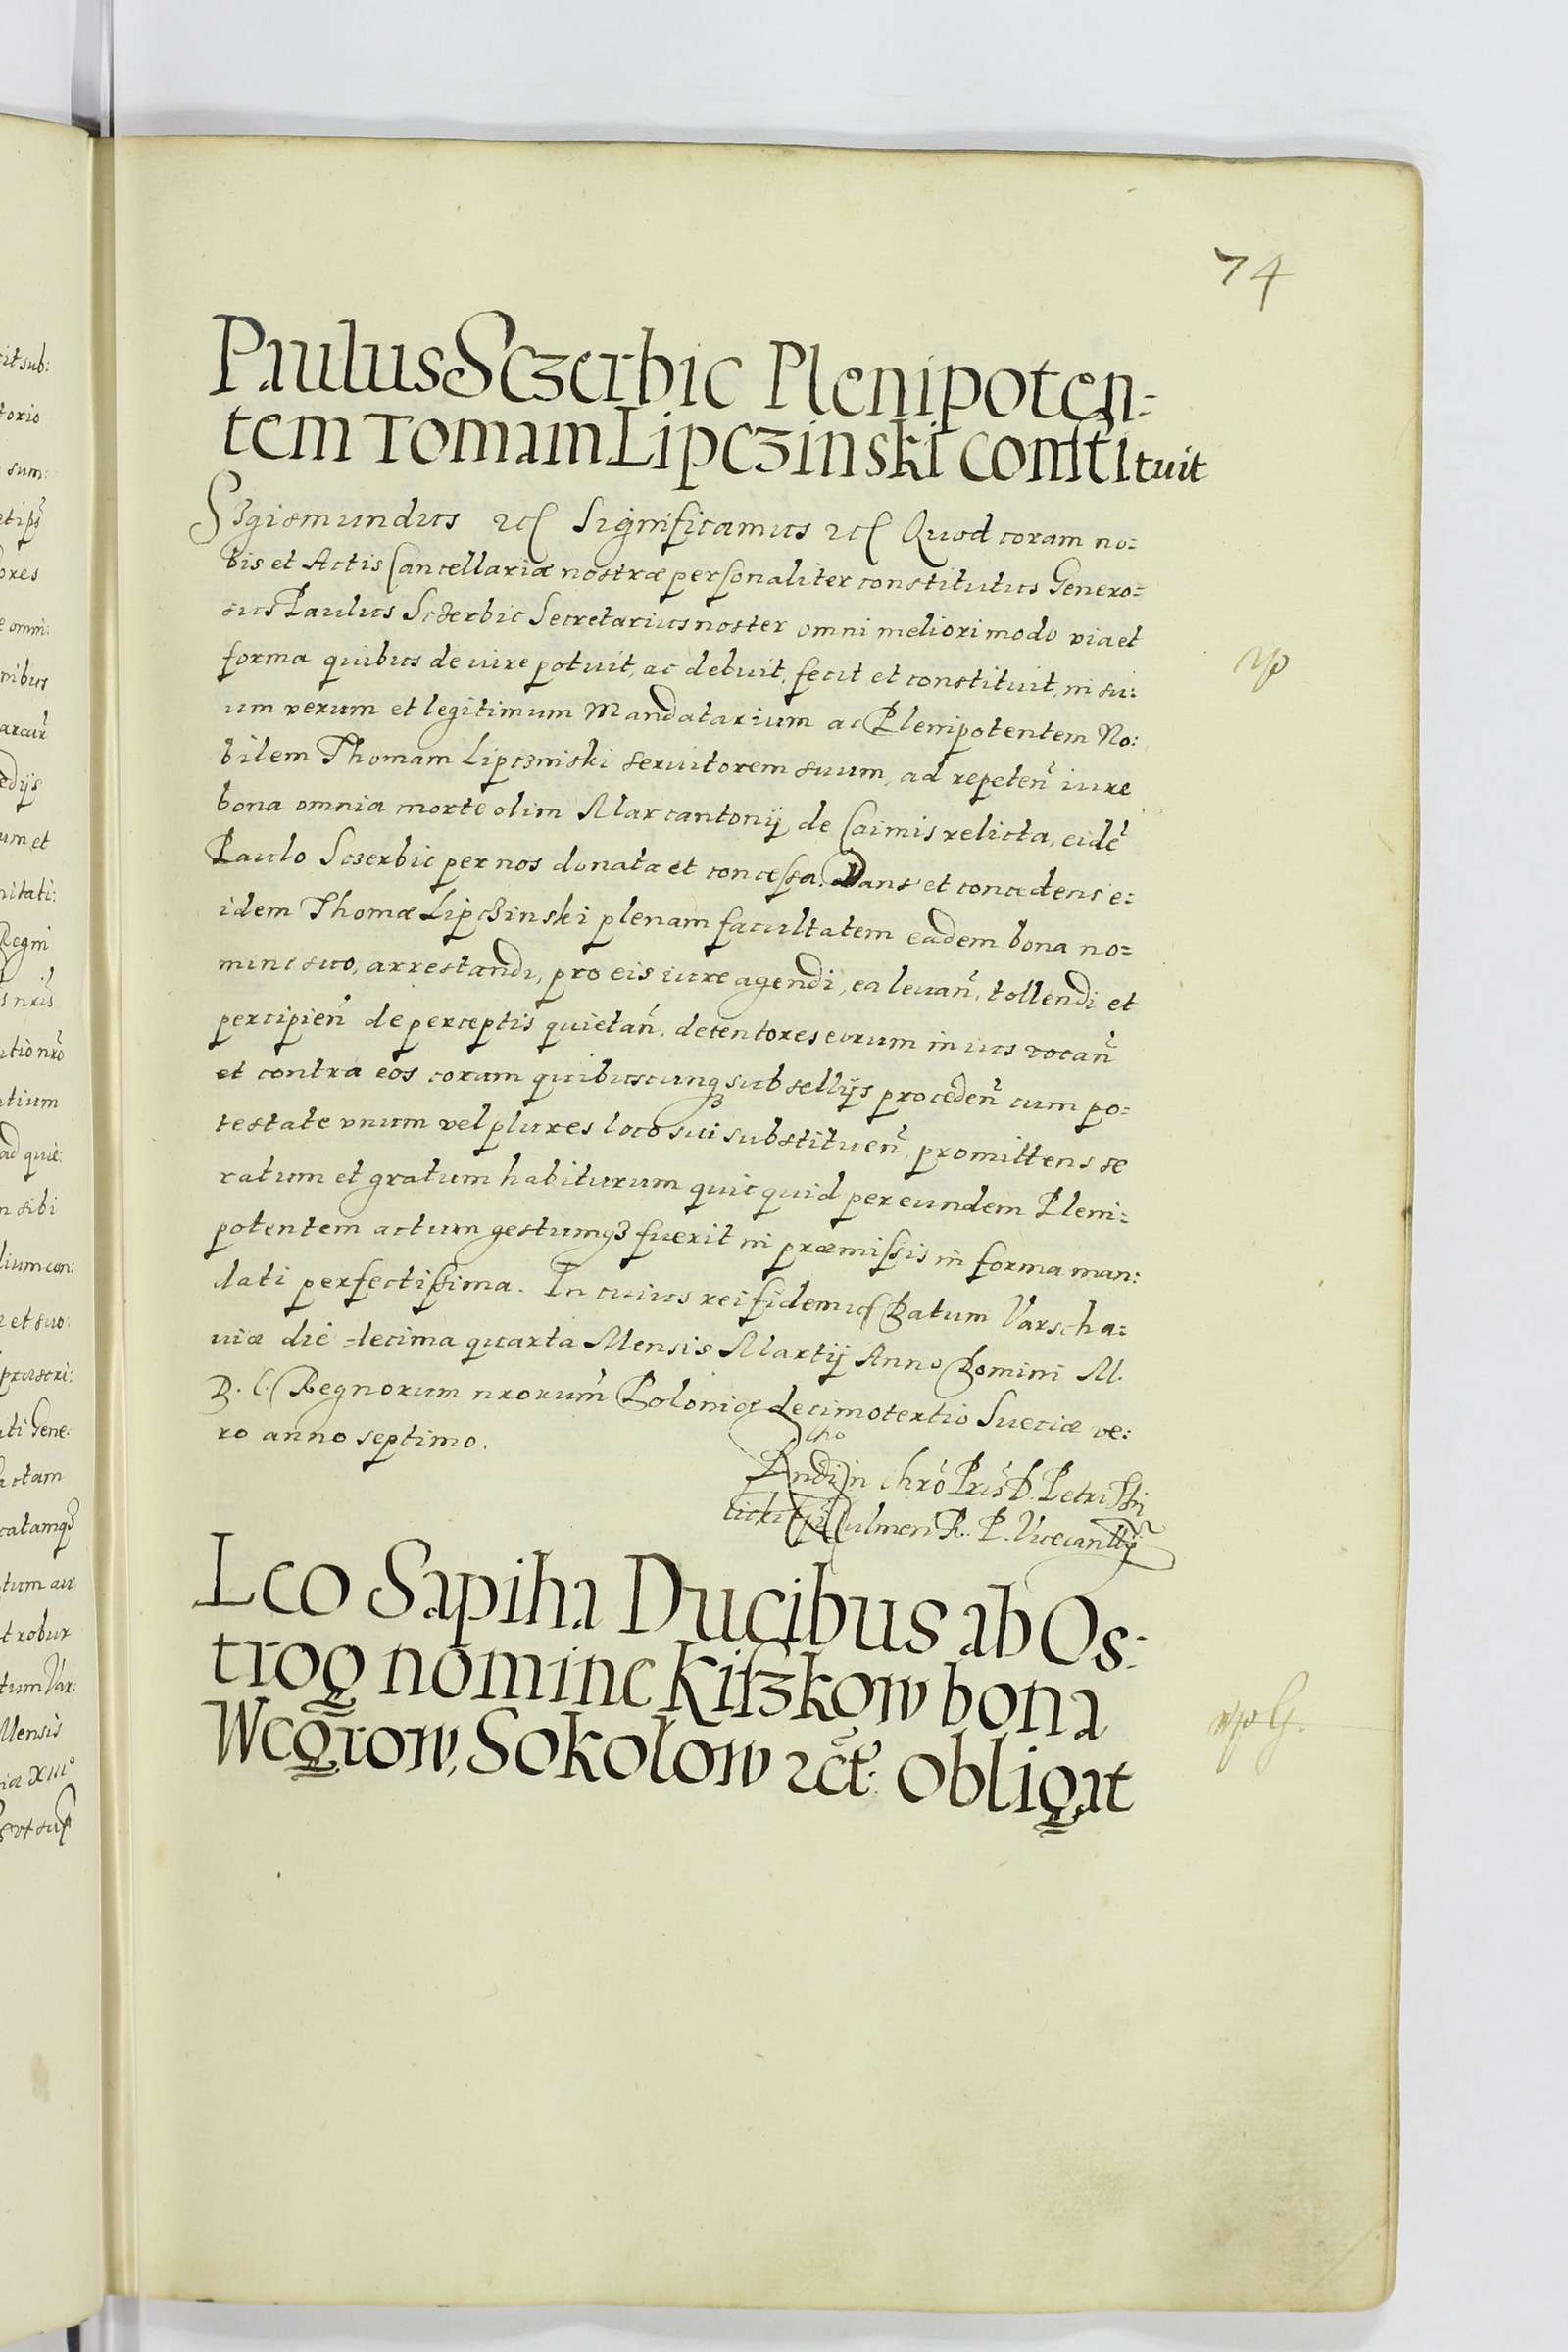 74
Paulus Sczerbic Plenipoten=
tem Tomam Lipczinski constituit
Sigismundus etc Significamus etc Quod coram no=
bis et Actis Cancellariæ nostræ personaliter constitutus Genero=
sus Paulus Sczerbic Secretarius noster omni meliori modo via et
forma quibus de iure potuit, ac debuit, fecit et constituit, in su:
um verum et legitimum Mandatarium ac Plenipotentem No:
bilem Thomam Lipczinski seruitorem suum, ad repeten̄ iure
bona omnia morte olim Marcantonij de Caimis relicta, eidē
Paulo Sczerbic per nos donata et concessa. Dans et concedens e:
idem Thomæ Lipczinski plenam facultatem eadem bona no=
mine suo, arrestandi, pro eis iure agendi, ea leuan̄, tollendi et
percipien̄ de perceptis quietan̄. detentores eorum in ius vocan̄
et contra eos coram quibuscunq3 subsellijs proceden̄ cum po=
testate vnum vel plures loco sui substituen̄, promittens se
ratum et gratum habiturum quicquid per eundem Pleni=
potentem actum gestumq3 fuerit in præmissis in forma man:
dati perfectissima. In cuius rei fidem etc Datum Varscha=
uiæ die decima quarta Mensis Martij Anno Domini M.
D. C. Regnorum nrorum̄ Poloniæ decimotertio Sueciæ ve:
ro anno septimo.
Rndi in Chrō Pris̄ D. Petri Tili
cicki Epī Culmen̄ R. P. Vicecanllrij
Leo Sapiha Ducibus ab Os:
trog nomine Kiszkow bona
Wegrow, Sokolow etc̄. obligat